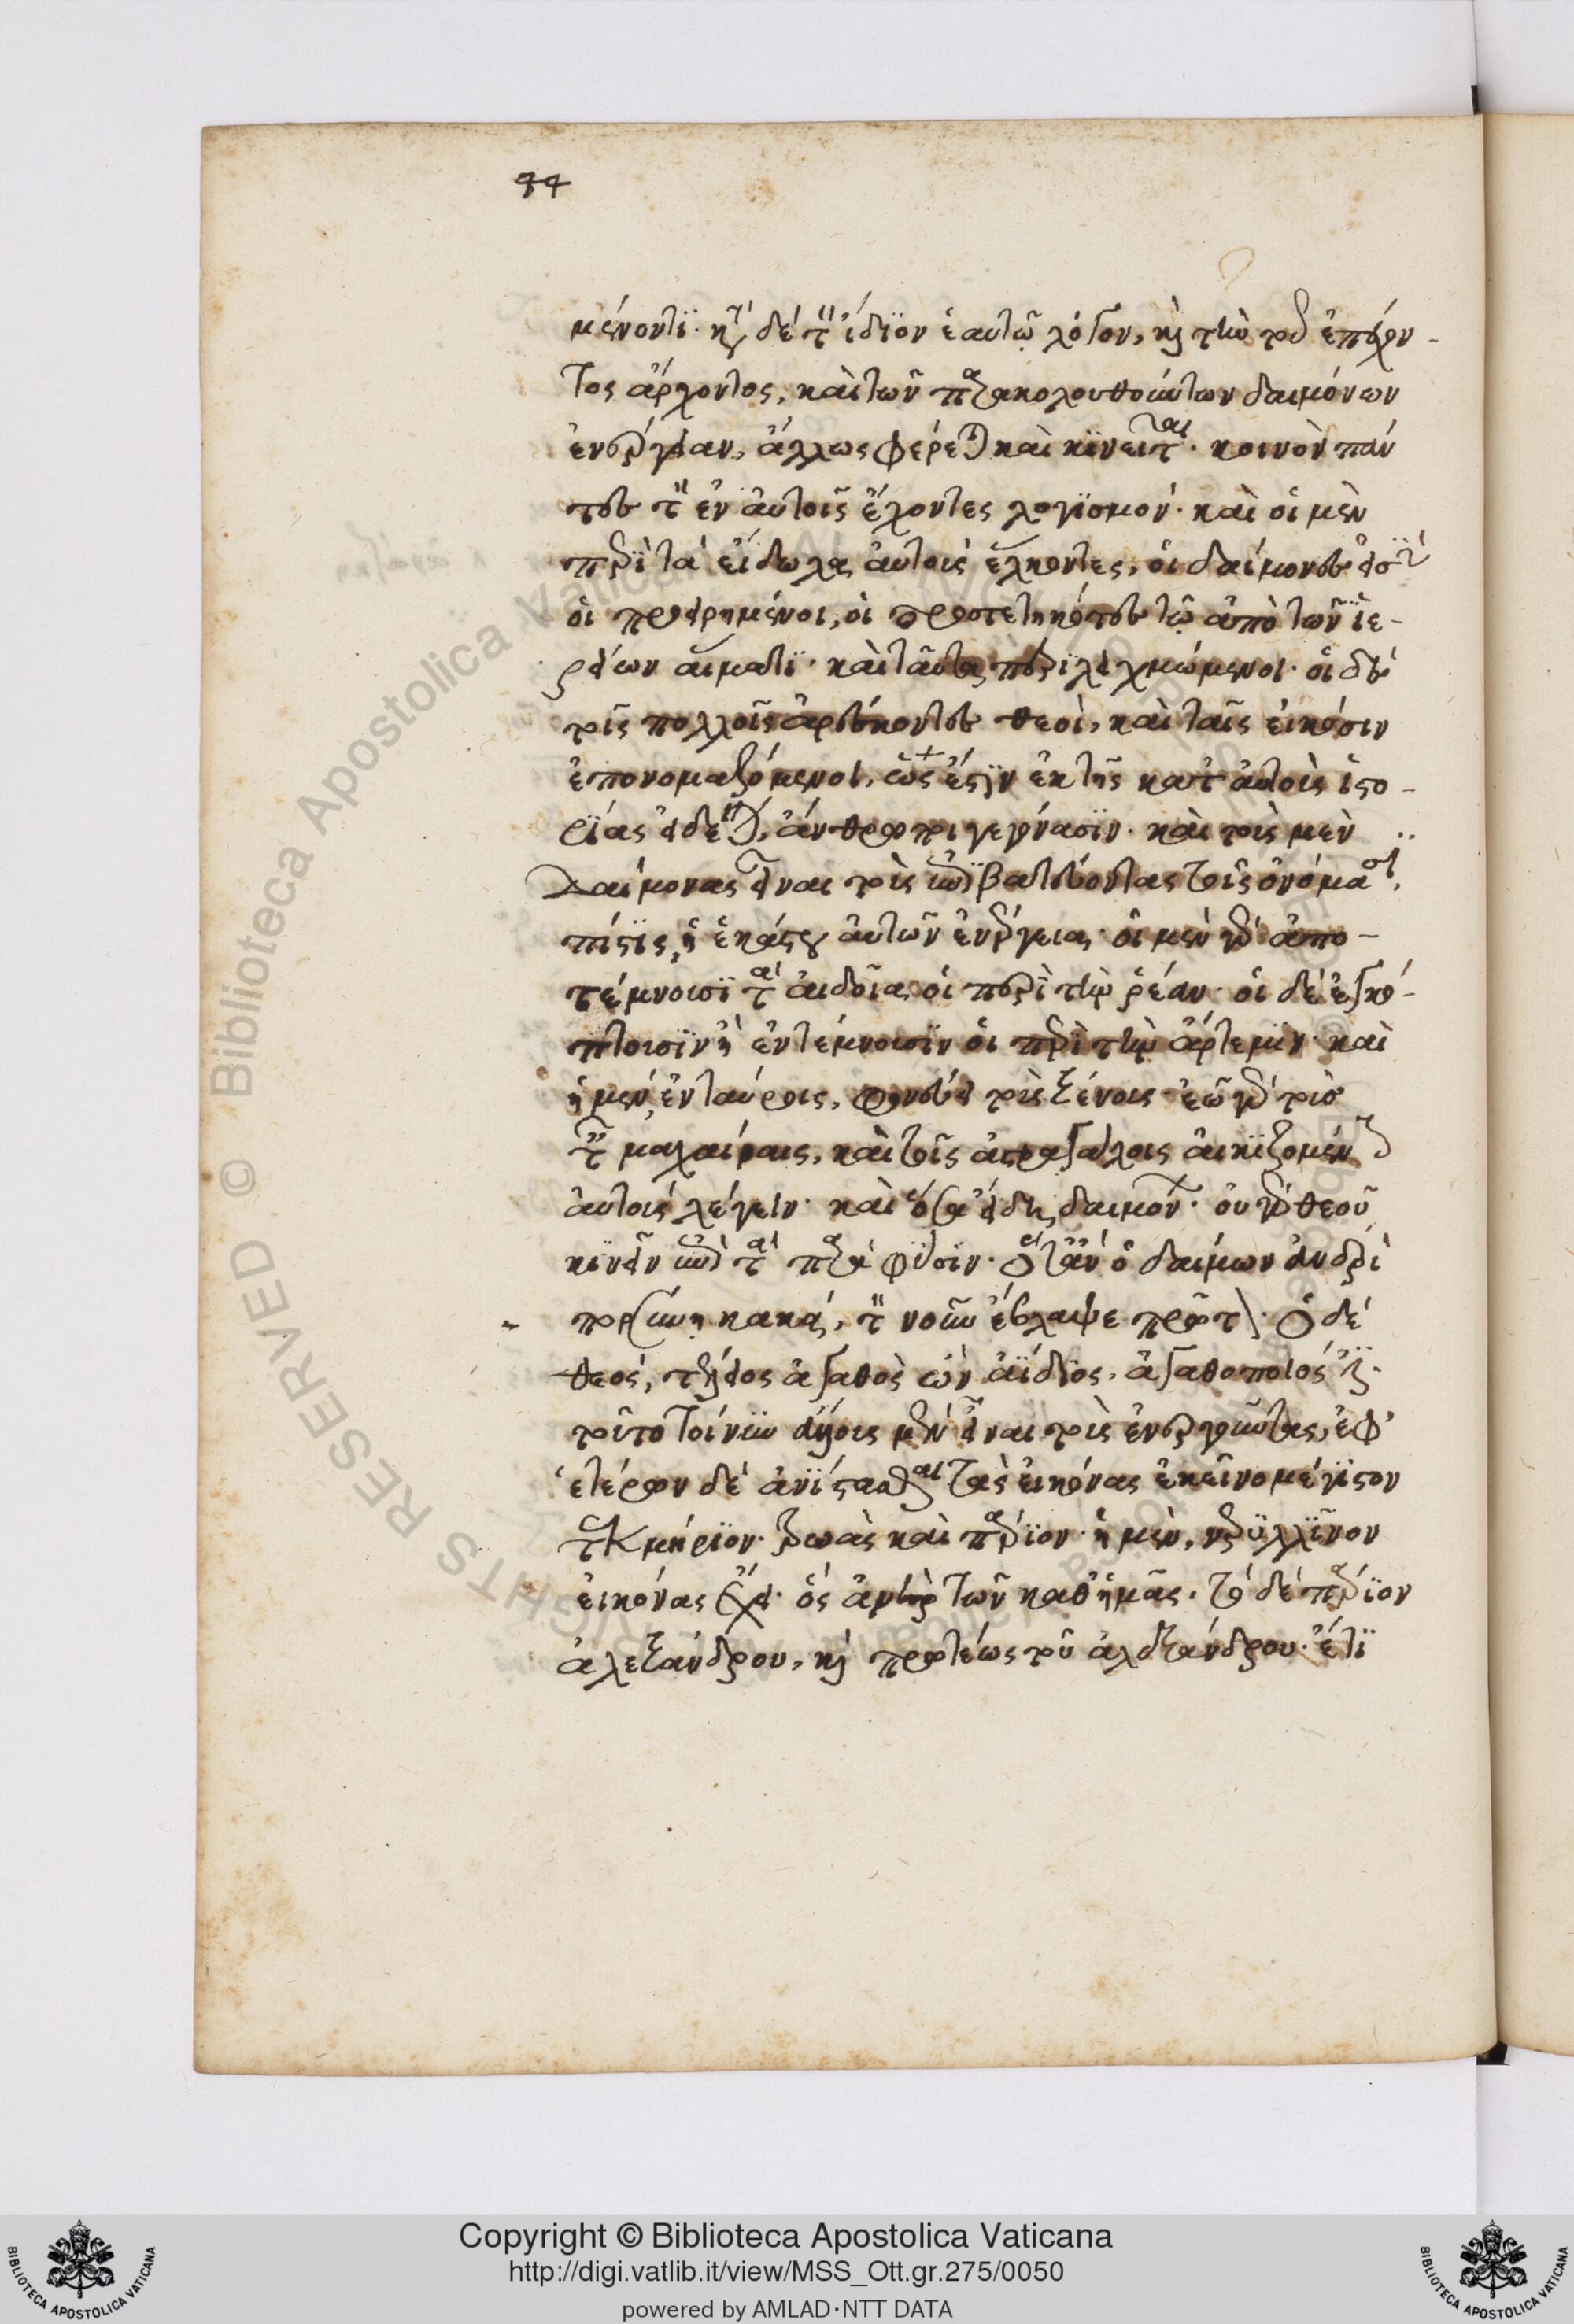 44
μένοντι. κατὰ δὲ τὸν ἴδιον ἑαυτῷ λόγον, καὶ τὴν τοῦ ἐπέχον-
τος ἄρχοντος, καὶ τῶν παρακολουθούντων δαιμόνων
ἐνέργειαν, ἄλλος φέρεται καὶ κινεῖται. κοινὸν πάν
τες τὸν ἐν αὐτοῖς ἔχοντες λογισμόν. καὶ οἱ μὲν
περὶ τὰ εἴδωλα αὐτοὺς ἕλκοντες, οἱ δαίμονες εἰσὶ
οἱ προειρημένοι, οἱ προστετηκότες τῷ ἀπὸ τῶν ἱε-
ρείων αἵματι. καὶ ταῦτα περιλειχμώμενοι. οἱ δὲ
τοῖς πολλοῖς ἀρέσκοντες θεοὶ, καὶ ταῖς εἰκόσιν
ἐπονομαζόμενοι, ὡς ἔστιν ἐκ τῆς κατ' αὐτοὺς ἱστο-
ρίας εἰδέναι, ἄνθρωποι γεγόνασιν. καὶ τοὺς μὲν
δαίμονας εἶναι τοὺς ἐπιβατεύοντας τοῖς ὀνόμασι,
πίστις, ἡ ἑκάστου αὐτῶν ἐνέργεια. οἱ μὲν γὰρ ἀπο-
τέμνουσι τὰ αἰδοῖα οἱ περὶ τὴν ῥέαν. οἱ δὲ ἐγκό-
πτουσιν ἢ ἐντέμνουσιν οἱ περὶ τὴν ἄρτεμιν. καὶ
ἡ μὲν ἐν ταύροις, φονεύει τοὺς ξένους. ἐῶ γὰρ τοὺς
ταῖς μαχαίραις, καὶ τοῖς ἀστραγάλοις αἰκιζομένους
αὐτοὺς λέγειν. καὶ ὅσα εἴδη δαιμόνων. οὐ γὰρ θεοῦ
κινεῖν ἐπὶ τὰ παρὰ φύσιν. ὅταν ὁ δαίμων ἀνδρὶ
πορσύνη κακά, τὸν νοῦν ἔβλαψε πρῶτον. ὁ δὲ
θεός, τελείως ἀγαθὸς ὢν ἀϊδίως, ἀγαθοποιός ἐστιν.
τοῦ τοίνυν ἄλλους μὲν εἶναι τοὺς ἐνεργοῦντας, ἐφ'
ἑτέρων δὲ ἀνίστασθαι τὰς εἰκόνας ἐκεῖνο μέγιστον
τεκμήριον. τρωὰς καὶ πάριον. ἡ μὲν, νερυλλίνου
εἰκόνας ἔχει. ὅς ἀνὴρ τῶν καθ' ἡμᾶς. τὸ δὲ πάριον
ἀλεξάνδρου, καὶ πρωτέως τοῦ ἀλεξάνδρου. ἔτι